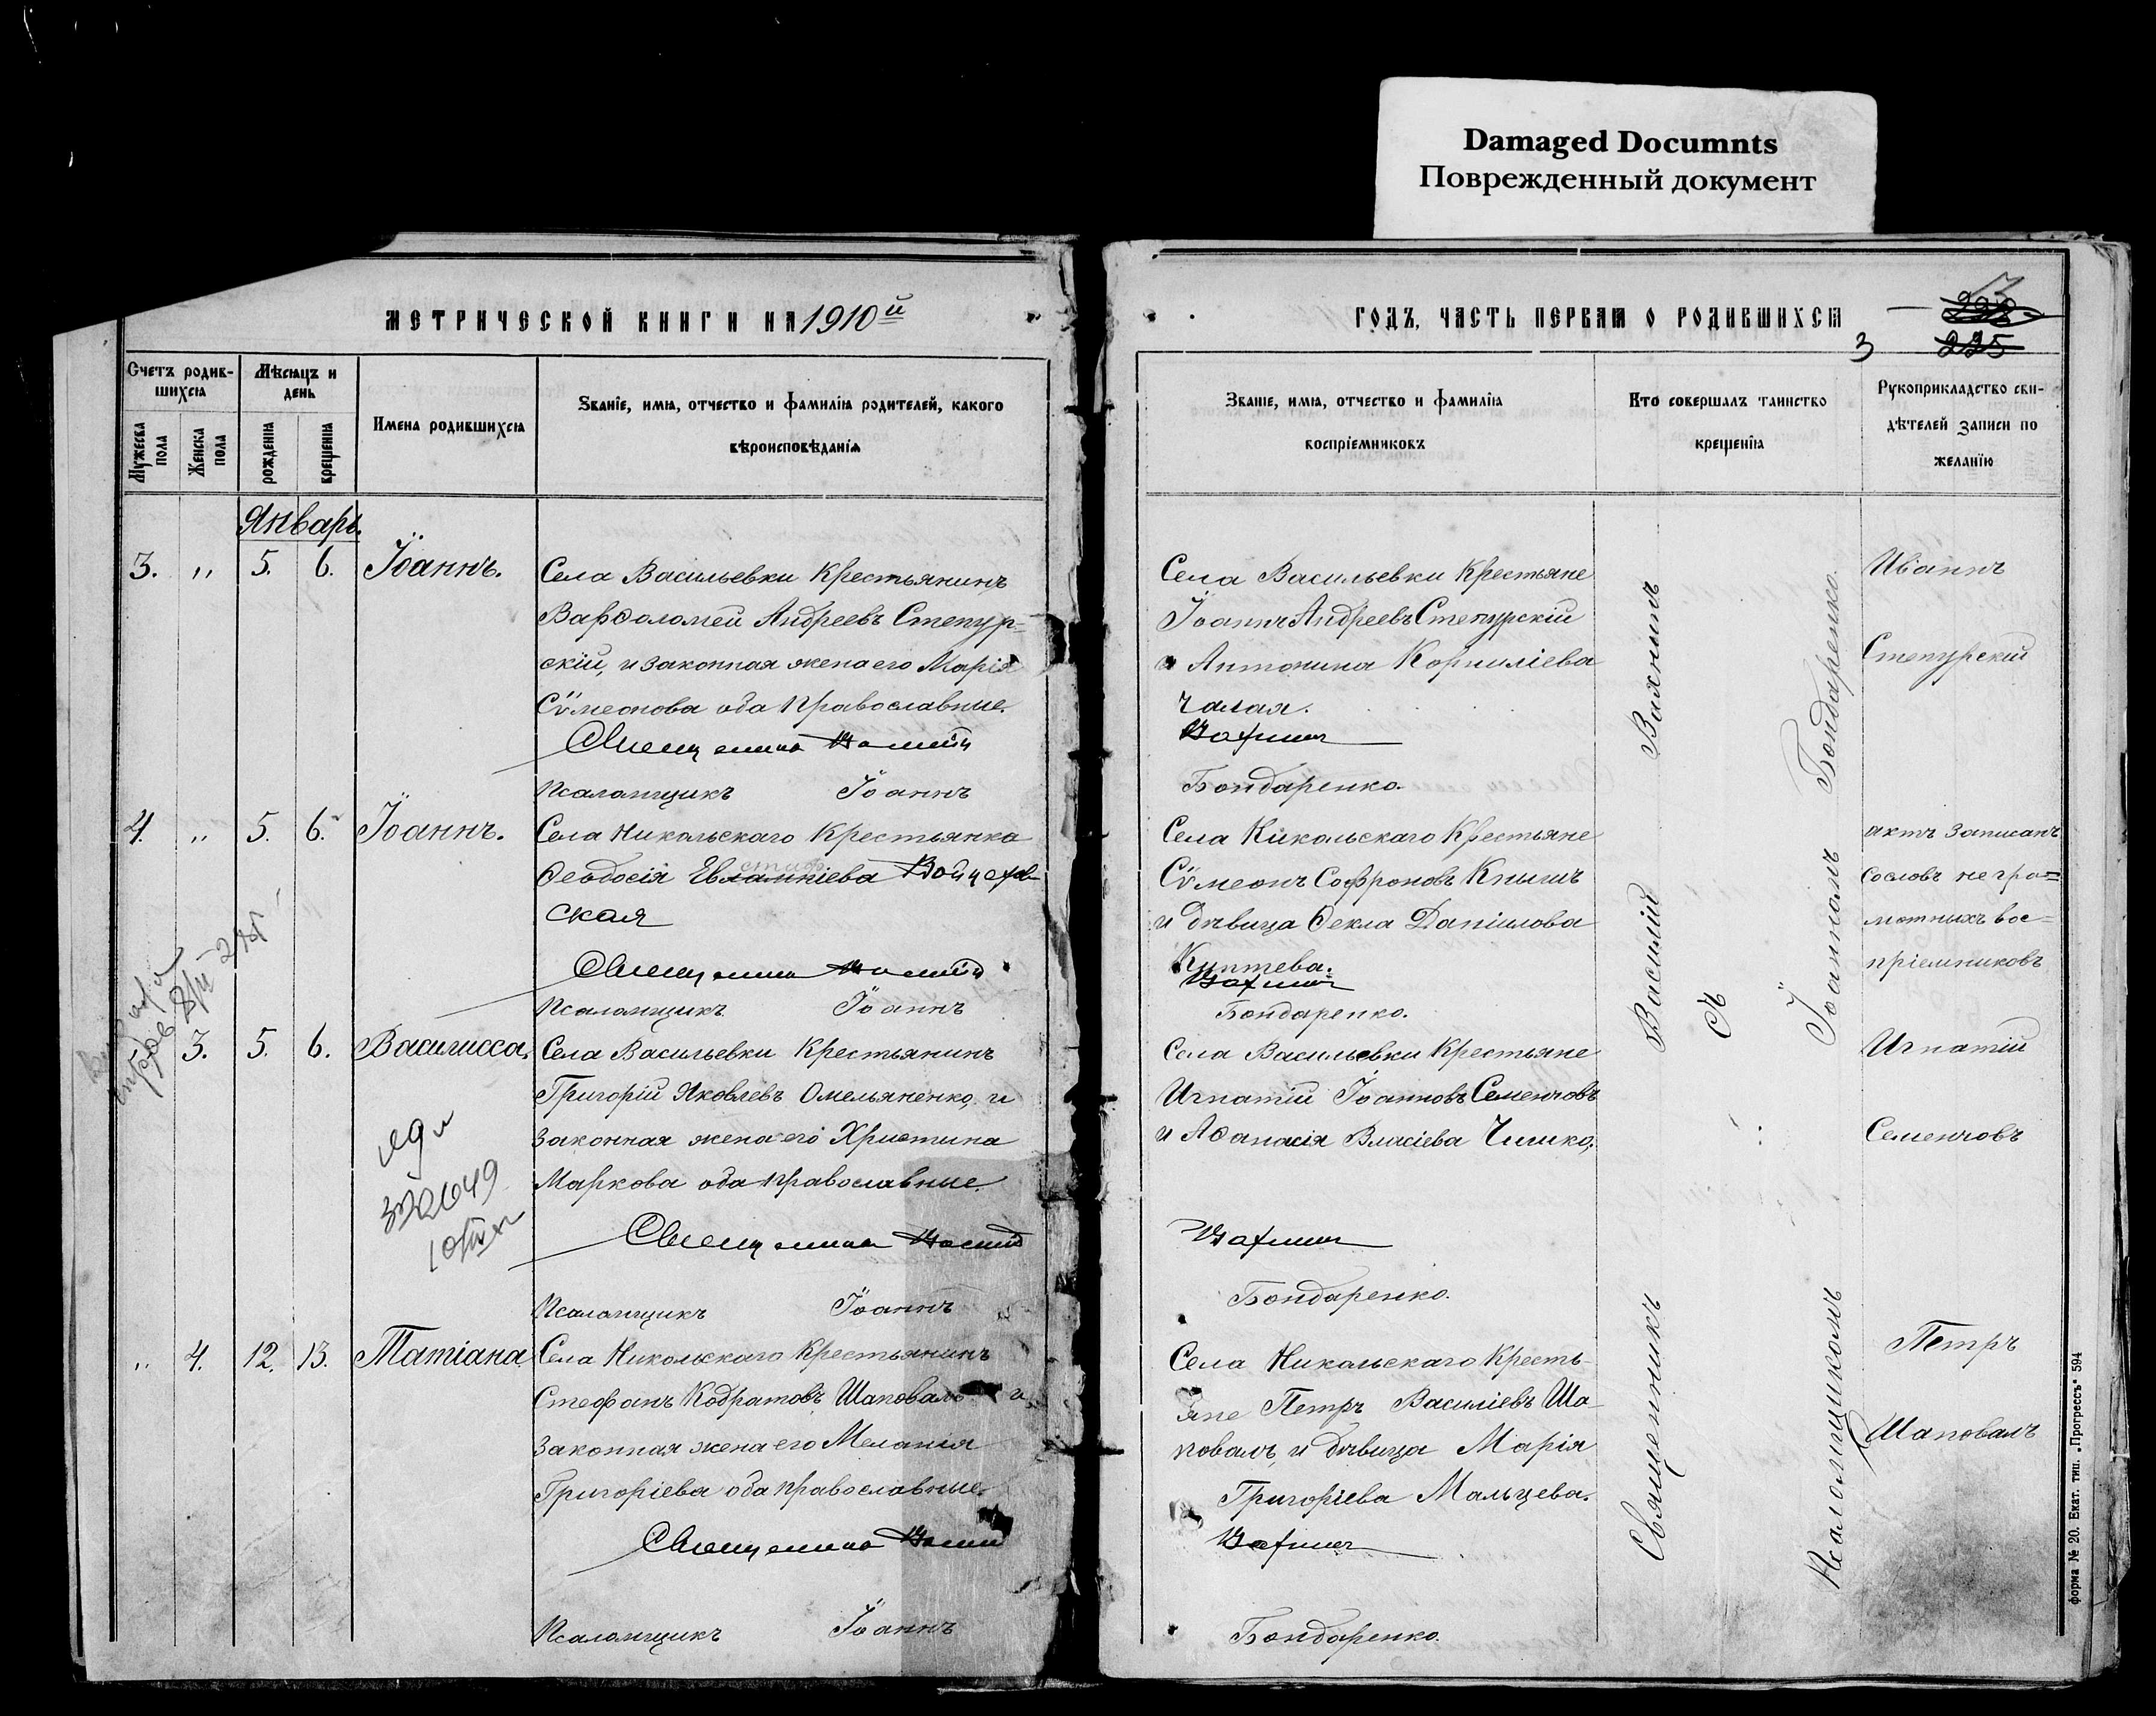 Damaged Documnts
Поврежденный документ
МЕТРИЧЕСКОЙ КНИГИ НА 1910й
ГОДЪ, ЧАСТЬ ПЕРВАЯ О РОДИВШИХСЯ
3
225
Счетъ родив-
шихся
Мужеска
пола
Женска
пола
Мѣсяцъ и
день
рожденія
крещенія
Имена родившихся
Званіе, имя, отчество и фамилія родителей, какого
вѣроисповѣданія
Званіе, имя, отчество и фамилія
воспріемниковъ
Кто совершалъ таинство
крещенія
Рукоприкладство сви-
дѣтелей записи по
желанію
Январь.
3. " 5. 6. Іоаннъ.
Села Васильевки Крестьянинъ
Варѳоломей Андреевъ Степур-
скій, и законная жена его Марія
Сѵмеонова оба православные.
Священникъ Василій
Псаломщикъ Іоаннъ
Села Васильевки Крестьяне
Іоаннъ Андреевъ Степурскій
и Антонина Корниліева
Чалая.
Вахнинъ
Бондаренко.
Иваннъ
Степурскій
4. " 5. 6. Іоаннъ.
Села Никольскаго Крестьянка
Ѳеодосія Евлампіева Войцехов-
ская
Священникъ Василій
Псаломщикъ Іоаннъ
Села Никольскаго Крестьяне
Сѵмеонъ Софроновъ Книшъ
и дѣвица Ѳекла Даніилова
Куптева.
Вахнинъ
Бондаренко.
актъ записанъ
со словъ негра=
мотныхъ вос=
пріемниковъ
3. 5. 6. Василисса.
Села Васильевки Крестьянинъ
Григорій Яковлевъ Омельяненко, и
законная жена его Христина
Маркова оба православные.
Священникъ Василій
Псаломщикъ Іоаннъ
Села Васильевки Крестьяне
Игнатій Іоанновъ Семенчовъ
и Аѳанасія Власіева Чишко.
Вахнинъ
Бондаренко.
Игнатій
Семенчовъ
" 4. 12. 13. Татіана
Села Никольскаго Крестьянинъ
Стефанъ Кодратовъ Шаповалъ и
законная жена его Меланія
Григоріева оба православные.
Священникъ Василій
Псаломщикъ Іоаннъ
Села Никольскаго Кресть-
яне Петръ Василіевъ Ша-
повалъ, и дѣвица Марія
Григоріева Мальцева.
Вахнинъ
Бондаренко.
Петръ
Шаповалъ
Священникъ Василій Вахнинъ
съ
Псаломщикомъ Іоанномъ Бондаренко.
форма № 20. Екат. тип. „Прогрессъ“ 594